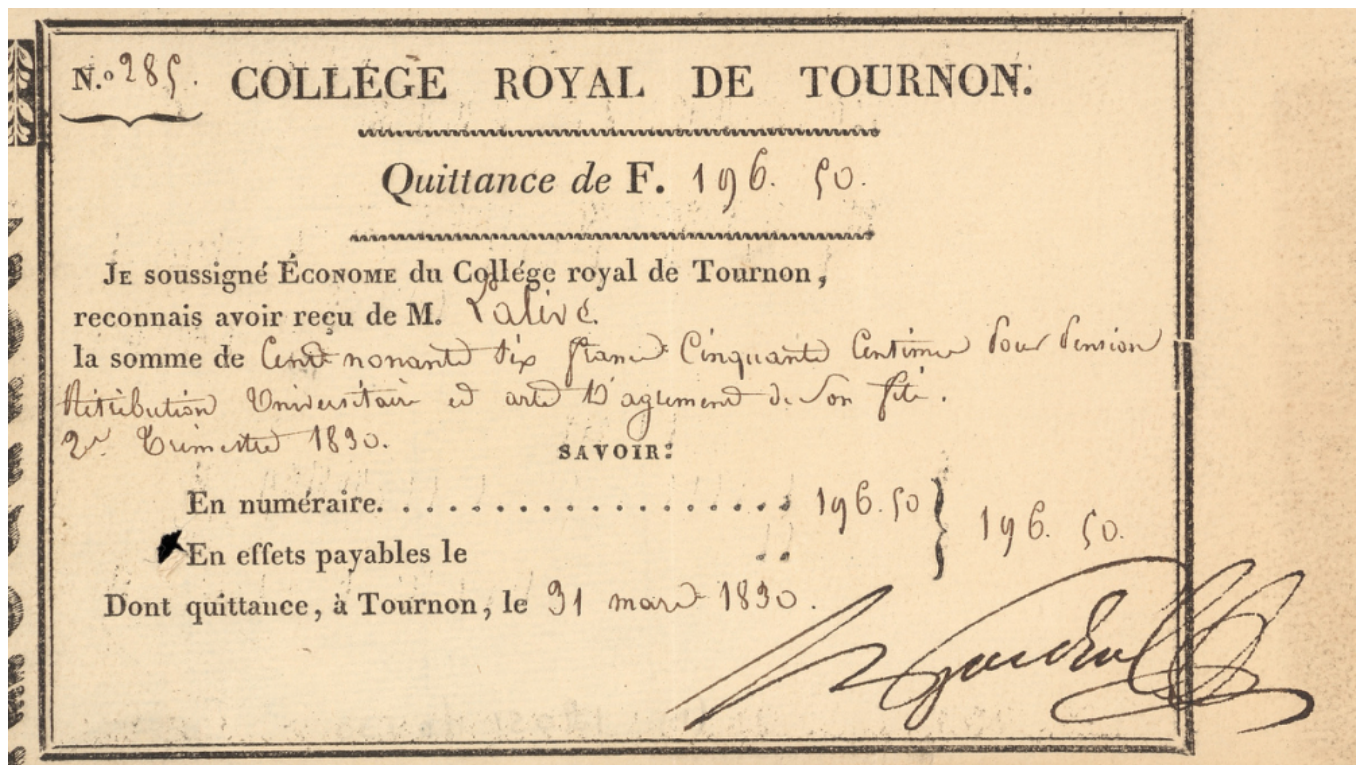 N.o 285. COLLÉGE ROYAL DE TOURNON.
Quittance de F. 196. 50.
JE soussigné ÉCONOME du Collége royal de Tournon,
reconnais avoir reçu de M. Lalive.
la somme de Cent nonante six francs Cinquante Centimes pour Pension
Rétribution Universitaire et arts D'agrément de Son fils.
2e Trimestre 1830.
SAVOIR:
En numéraire. . . . . . . . . . . . . . . . . . 196.50 } 196. 50.
En effets payables le
Dont quittance, à Tournon, le 31 mars 1830.